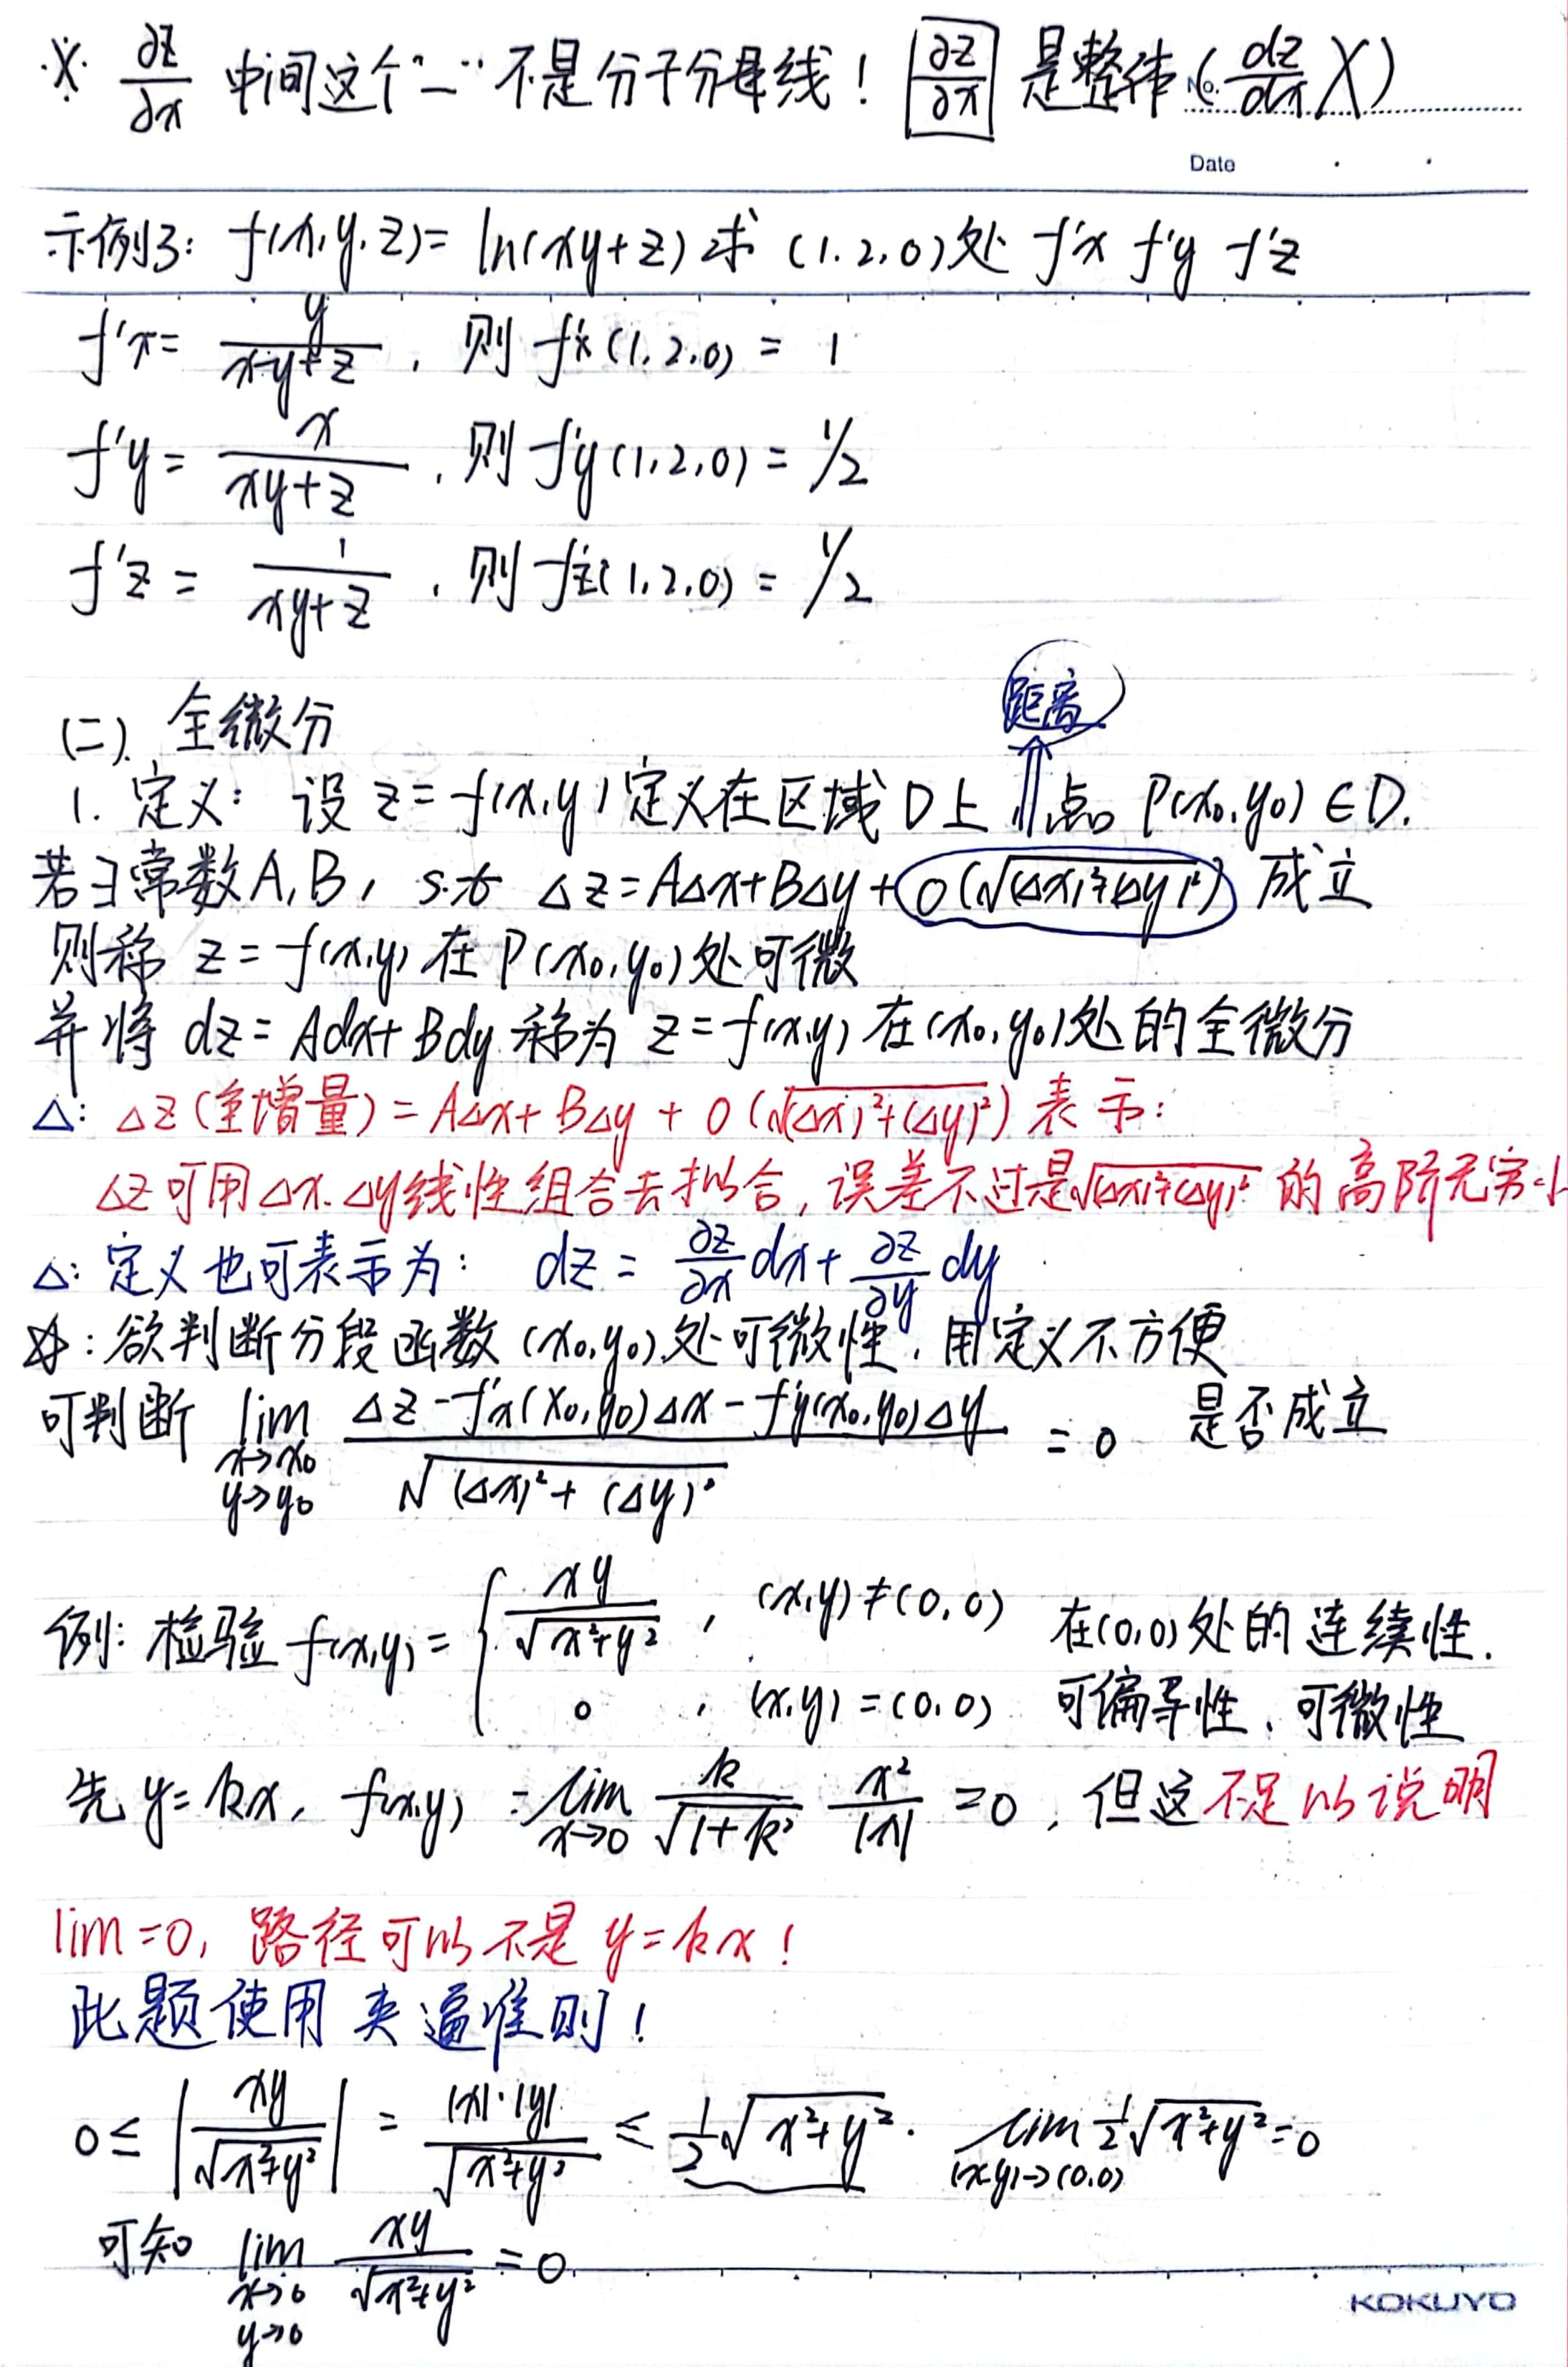 ※ ∂z/∂x 中间这个"—"不是分子分母线! ∂z/∂x 是整体 (dz/dx ╳)
No.
Date
示例3: f(x,y,z)= ln(xy+z) 求 (1,2,0)处 f'x f'y f'z
f'x = y/(xy+z) , 则 f'x(1,2,0) = 1
f'y = x/(xy+z) , 则 f'y(1,2,0) = 1/2
f'z = 1/(xy+z) , 则 f'z(1,2,0) = 1/2
距离
(二). 全微分
1. 定义: 设 z=f(x,y)定义在区域D上 ⇑ 点 P(x₀,y₀)∈D.
若∃常数A,B, s.t. △z=A△x+B△y+o(√((△x)²+(△y)²)) 成立
则称 z=f(x,y) 在 P(x₀,y₀)处可微
并将 dz=Adx+Bdy 称为 z=f(x,y) 在(x₀,y₀)处的全微分
△: △z(全增量)=A△x+B△y+o(√((△x)²+(△y)²)) 表示:
△z可用△x.△y线性组合去拟合, 误差不过是√((△x)²+(△y)²) 的高阶无穷小
△: 定义也可表示为: dz = ∂z/∂x dx + ∂z/∂y dy
☆: 欲判断分段函数 (x₀,y₀)处可微性, 用定义不方便
可判断 lim x→x₀ y→y₀ (△z-f'x(x₀,y₀)△x-f'y(x₀,y₀)△y)/√((△x)²+(△y)²) = 0 是否成立
例: 检验 f(x,y)= { xy/√(x²+y²) , (x,y)≠(0,0) 在(0,0)处的连续性.
0 , (x,y)=(0,0) 可偏导性、可微性
先 y=kx, f(x,y) = lim x→0 k/√(1+k²) x²/|x| =0 , 但这不足以说明
lim=0, 路径可以不是 y=kx!
此题使用夹逼准则!
0≤ |xy/√(x²+y²)| = |x|·|y|/√(x²+y²) ≤ 1/2√(x²+y²). lim (x,y)→(0,0) 1/2√(x²+y²)=0
可知 lim x→0 y→0 xy/√(x²+y²) =0
KOKUYO